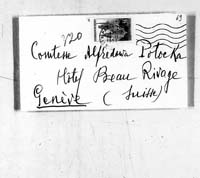 220
Comtesse Alfredowa Potocka
Hôtel Beau Rivage
Genève (Suisse)